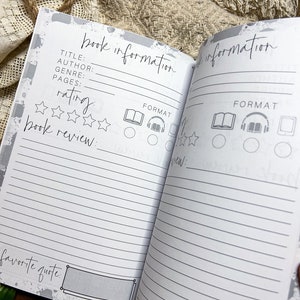 book information
TITLE:
AUTHOR:
GENRE:
PAGES:
rating
FORMAT
book review:
favorite quote
information
FORMAT